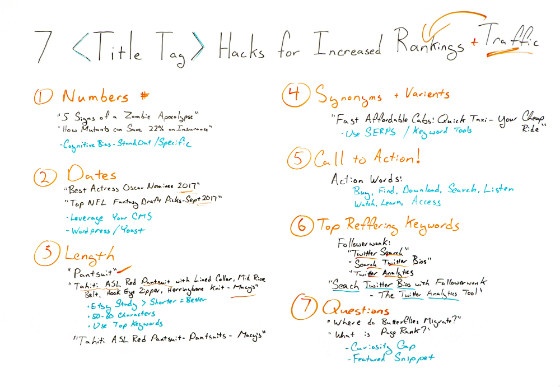 7 <Title Tag> Hacks for Increased Rankings + Traffic
1 Numbers #
"5 Signs of a Zombie Apocalypse"
"How Mutants can Save 22% on Insurance"
- Cognitive Bias - Stand Out / Specific
2 Dates
"Best Actress Oscar Nominee 2017"
"Top NFL Fantasy Draft Picks - Sept 2017"
- Leverage Your CMS
- Wordpress / Yoast
3 Length
"Pantsuit"
"Tahiti ASL Red Pantsuit with Lined Collar, Mid Rise
Belt, Hook Eye Zipper, Herringbone Knit - Macy's"
- Etsy Study > Shorter = Better
- 50-60 Characters
- Use Top Keywords
"Tahiti ASL Red Pantsuit - Pantsuits - Macy's"
4 Synonyms + Varients
"Fast Affordable Cabs: Quick Taxi - Your Cheap
Ride"
- Use SERPS / Keyword Tools
5 Call to Action!
Action Words:
Buy, Find, Download, Search, Listen
Watch, Learn, Access
6 Top Reffering Keywords
Followerwonk:
"Twitter Search"
"Search Twitter Bios"
"Twitter Analytics
"Seach Twitter Bios with Followerwonk
- The Twitter Analytics Tool"
7 Questions
"Where do Butterflies Migrate?"
"What is Page Rank?"
- Curiosity Gap
- Featured Snippet